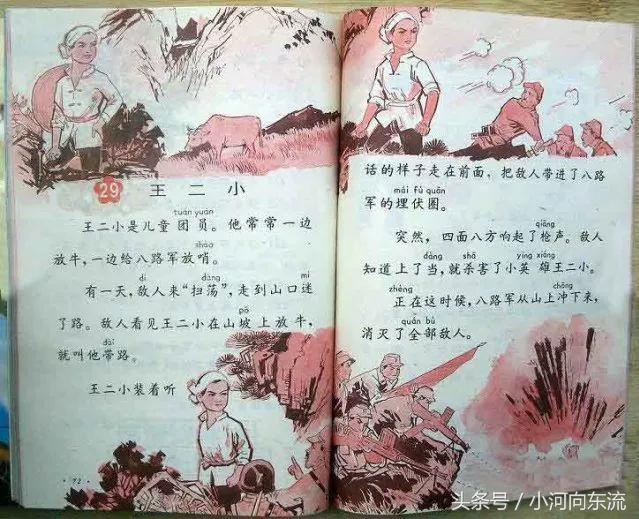 29 王二小
tuán yuán
王二小是儿童团员。他常常一边
shào
放牛，一边给八路军放哨。
dí dàng mí
有一天，敌人来“扫荡”，走到山口迷
pō
了路。敌人看见王二小在山坡上放牛，
dài
就叫他带路。
王二小装着听
·72·
话的样子走在前面，把敌人带进了八路
mái fú quān
军的埋伏圈。
qiāng
突然，四面八方响起了枪声。敌人
dàng shā yīng xióng
知道上了当，就杀害了小英雄王二小。
zhèng chōng
正在这时候，八路军从山上冲下来，
quán bù
消灭了全部敌人。
头条号／小河向东流